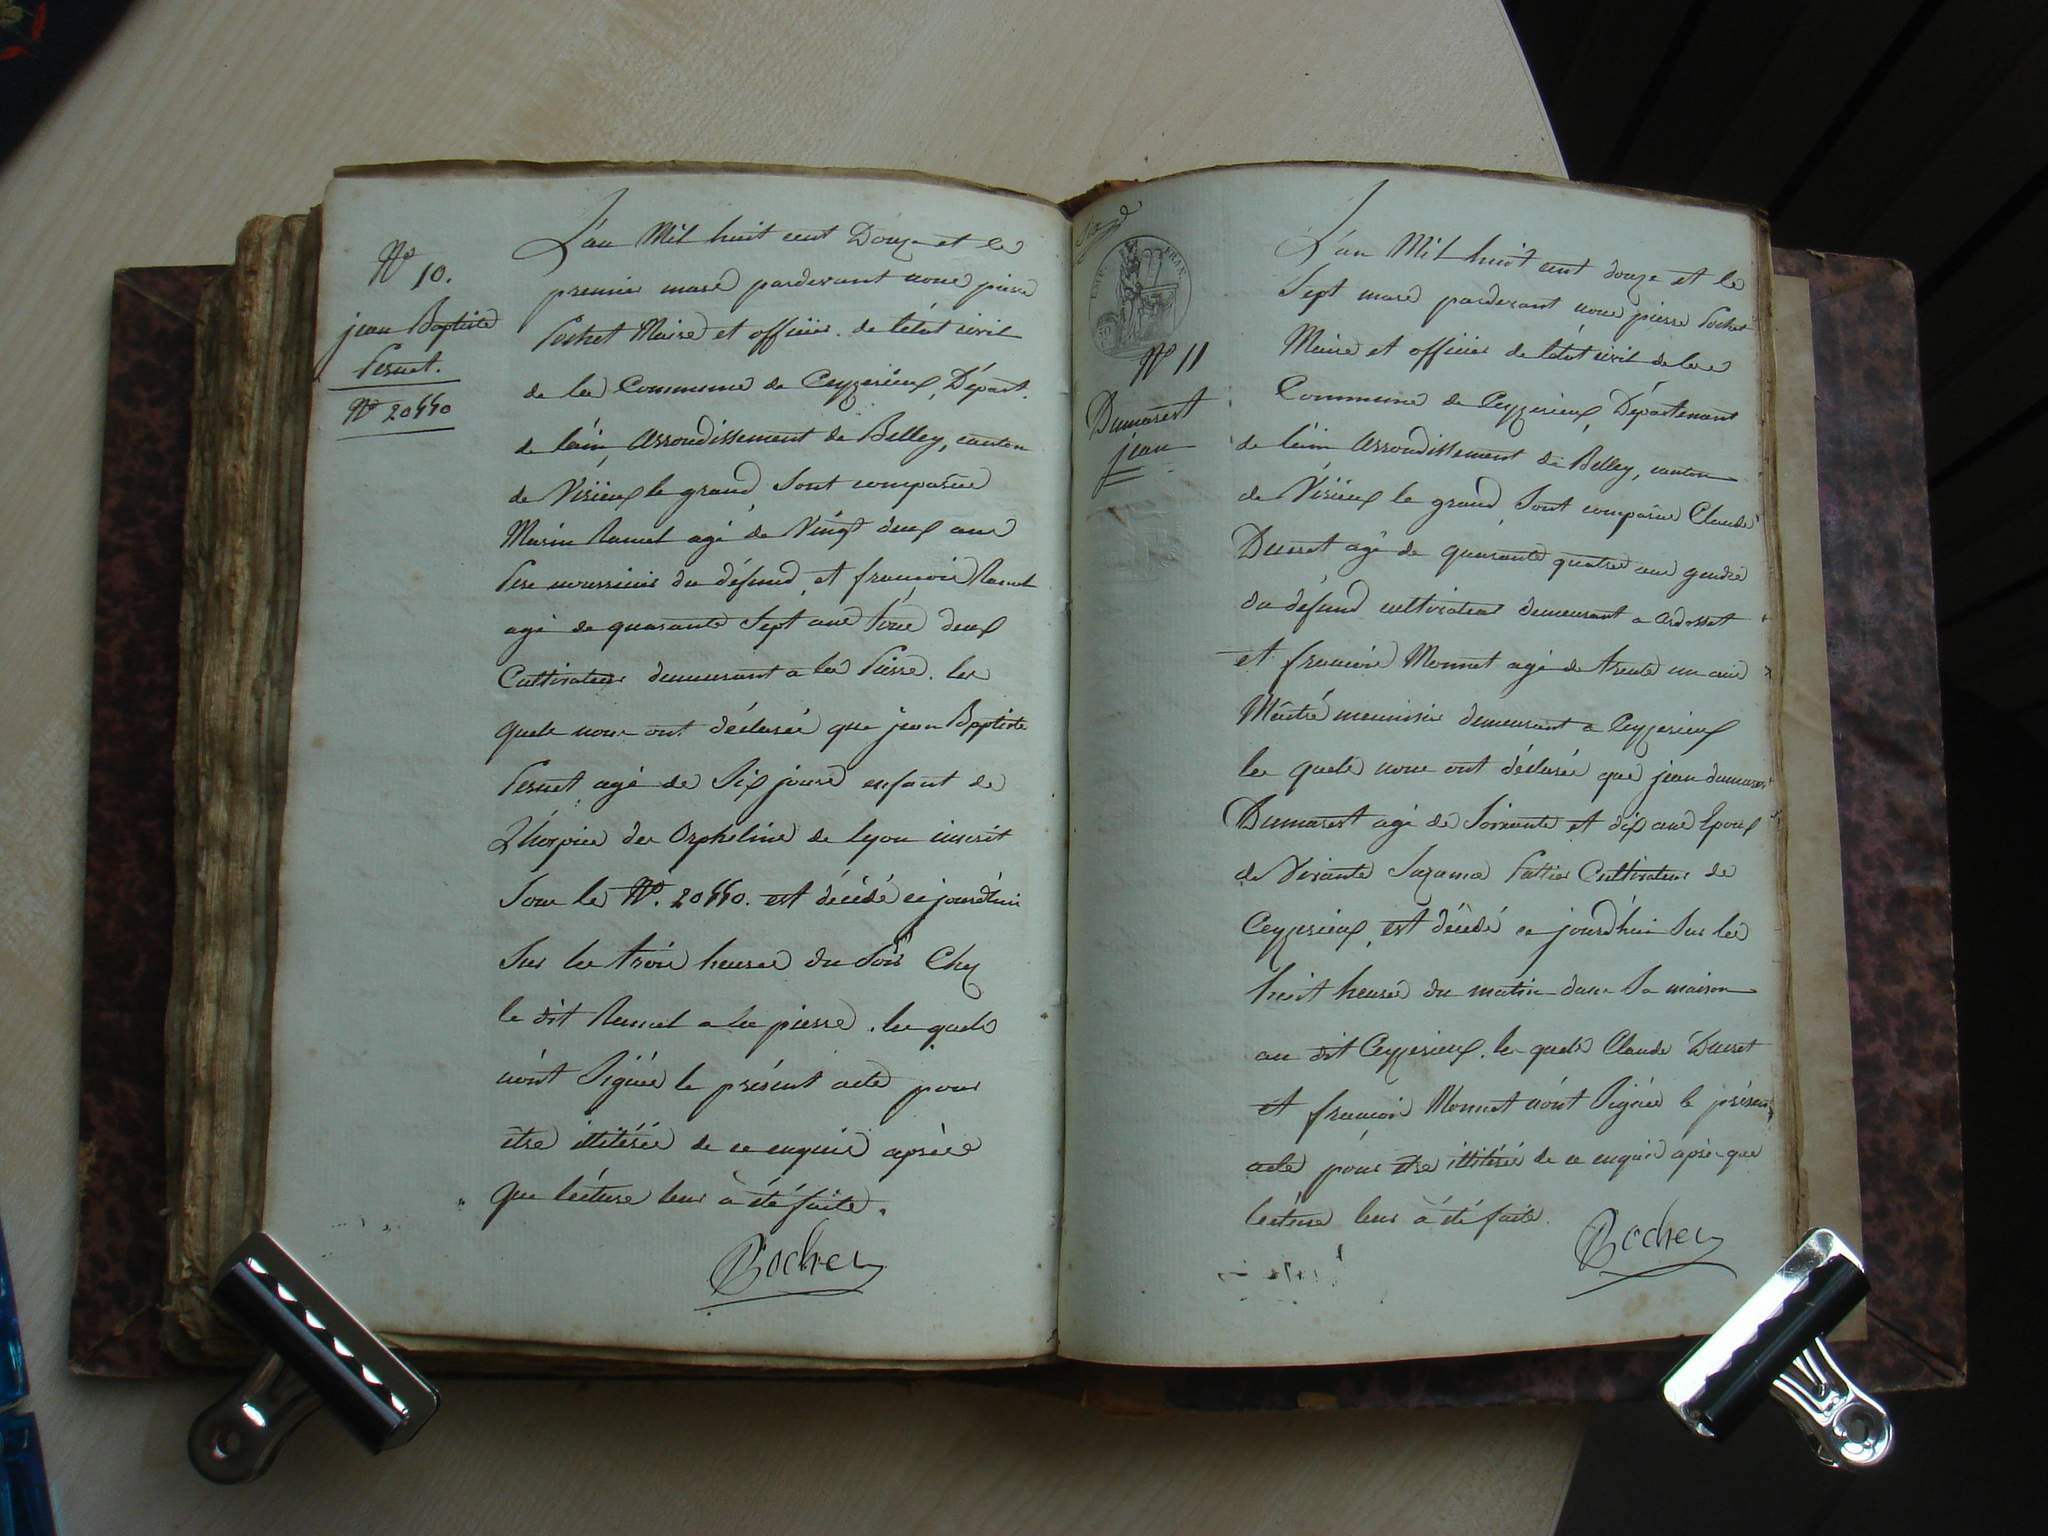 N° 10.
jean Baptiste
Pernet.
N° 20440
L'an Mil huit cent Douze et le
premier mars pardevant nous pierre
Pochet Maire et officier de létat civil
de la Commune de Ceyzerieux, Départ.
de láin, Arrondissement de Belley, canton
de Virieux le grand, Sont comparus
Marin Ramel agé de Vingt deux ans
Pere nourricier du défund, et françois Ramel
agé de quarante Sept ans tous deux
Cultivateurs demeurant a la Pierre. les
quels nous ont déclarés que jean Baptiste
Pernet agé de Six jours enfant de
L'hospice des Orphelins de Lyon inscrit
Sous le N°. 20440. est décédé ce jourd'hui
Sur les trois heures du Soir Chez
le dit Ramel a la pierre. les quels
nónt Signés le présent acte pour
être illitérés de ce enquis après
que lécture leur à été faite.
Pochet
N° 11
Dumarest
jean
L'an Mil huit cent douze et le
Sept mars pardevant nous pierre Pochet
Maire et officier de létat civil de la
Commune de Ceyzerieux, Département
de láin Arrondissement de Belley, canton
de Virieux le grand, Sont comparus Claude
Ducret agé de quarante quatre ans gendre
du défund cultivateur demeurant a Ardosset
et françois Monnet agé de trente un ans
Maitre menuisier demeurant a Ceyzerieux
les quels nous ont déclarés que jean dumarest
Dumarest agé de Soixante et dix ans Epoux
de Vivante Suzanne Cultivateur de
Ceyzerieux, est décédé ce jourd'hui Sur les
huit heures du matin dans Sa maison
au dit Ceyzerieux. les quels Claude Ducret
et françois Monnet nónt Signés le présent
acte pour être illitérés de ce enquis après que
lécture leur à été faite.
Pochet